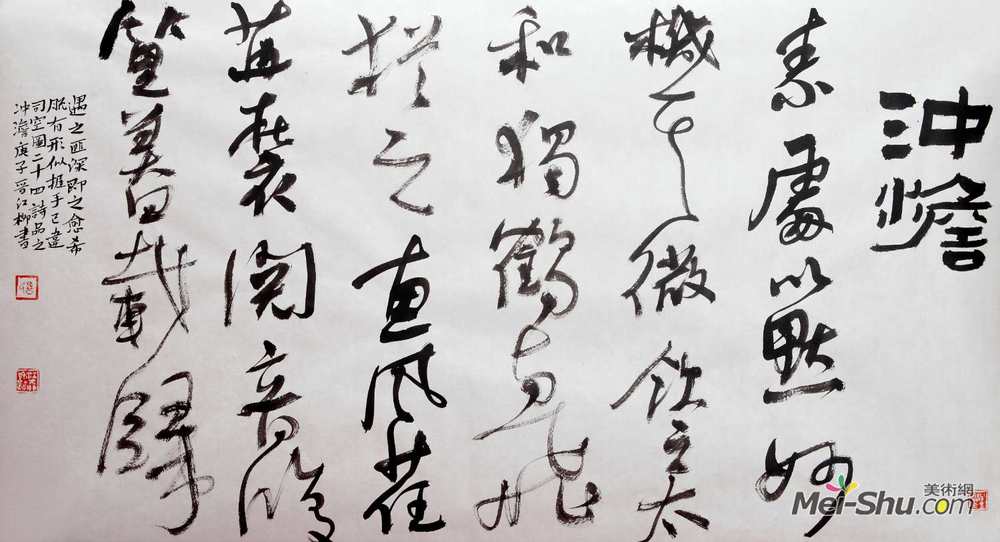 沖憺
素處以默妙
機其微飲之太
和獨鶴與飛
猶之惠風荏
苒在衣閱音脩
篁美曰載歸
遇之匪深即之愈希
脱有形似握手已違
司空圖二十四詩品之
沖澹庚子晉江柳書
美術網
Mei-Shu.com